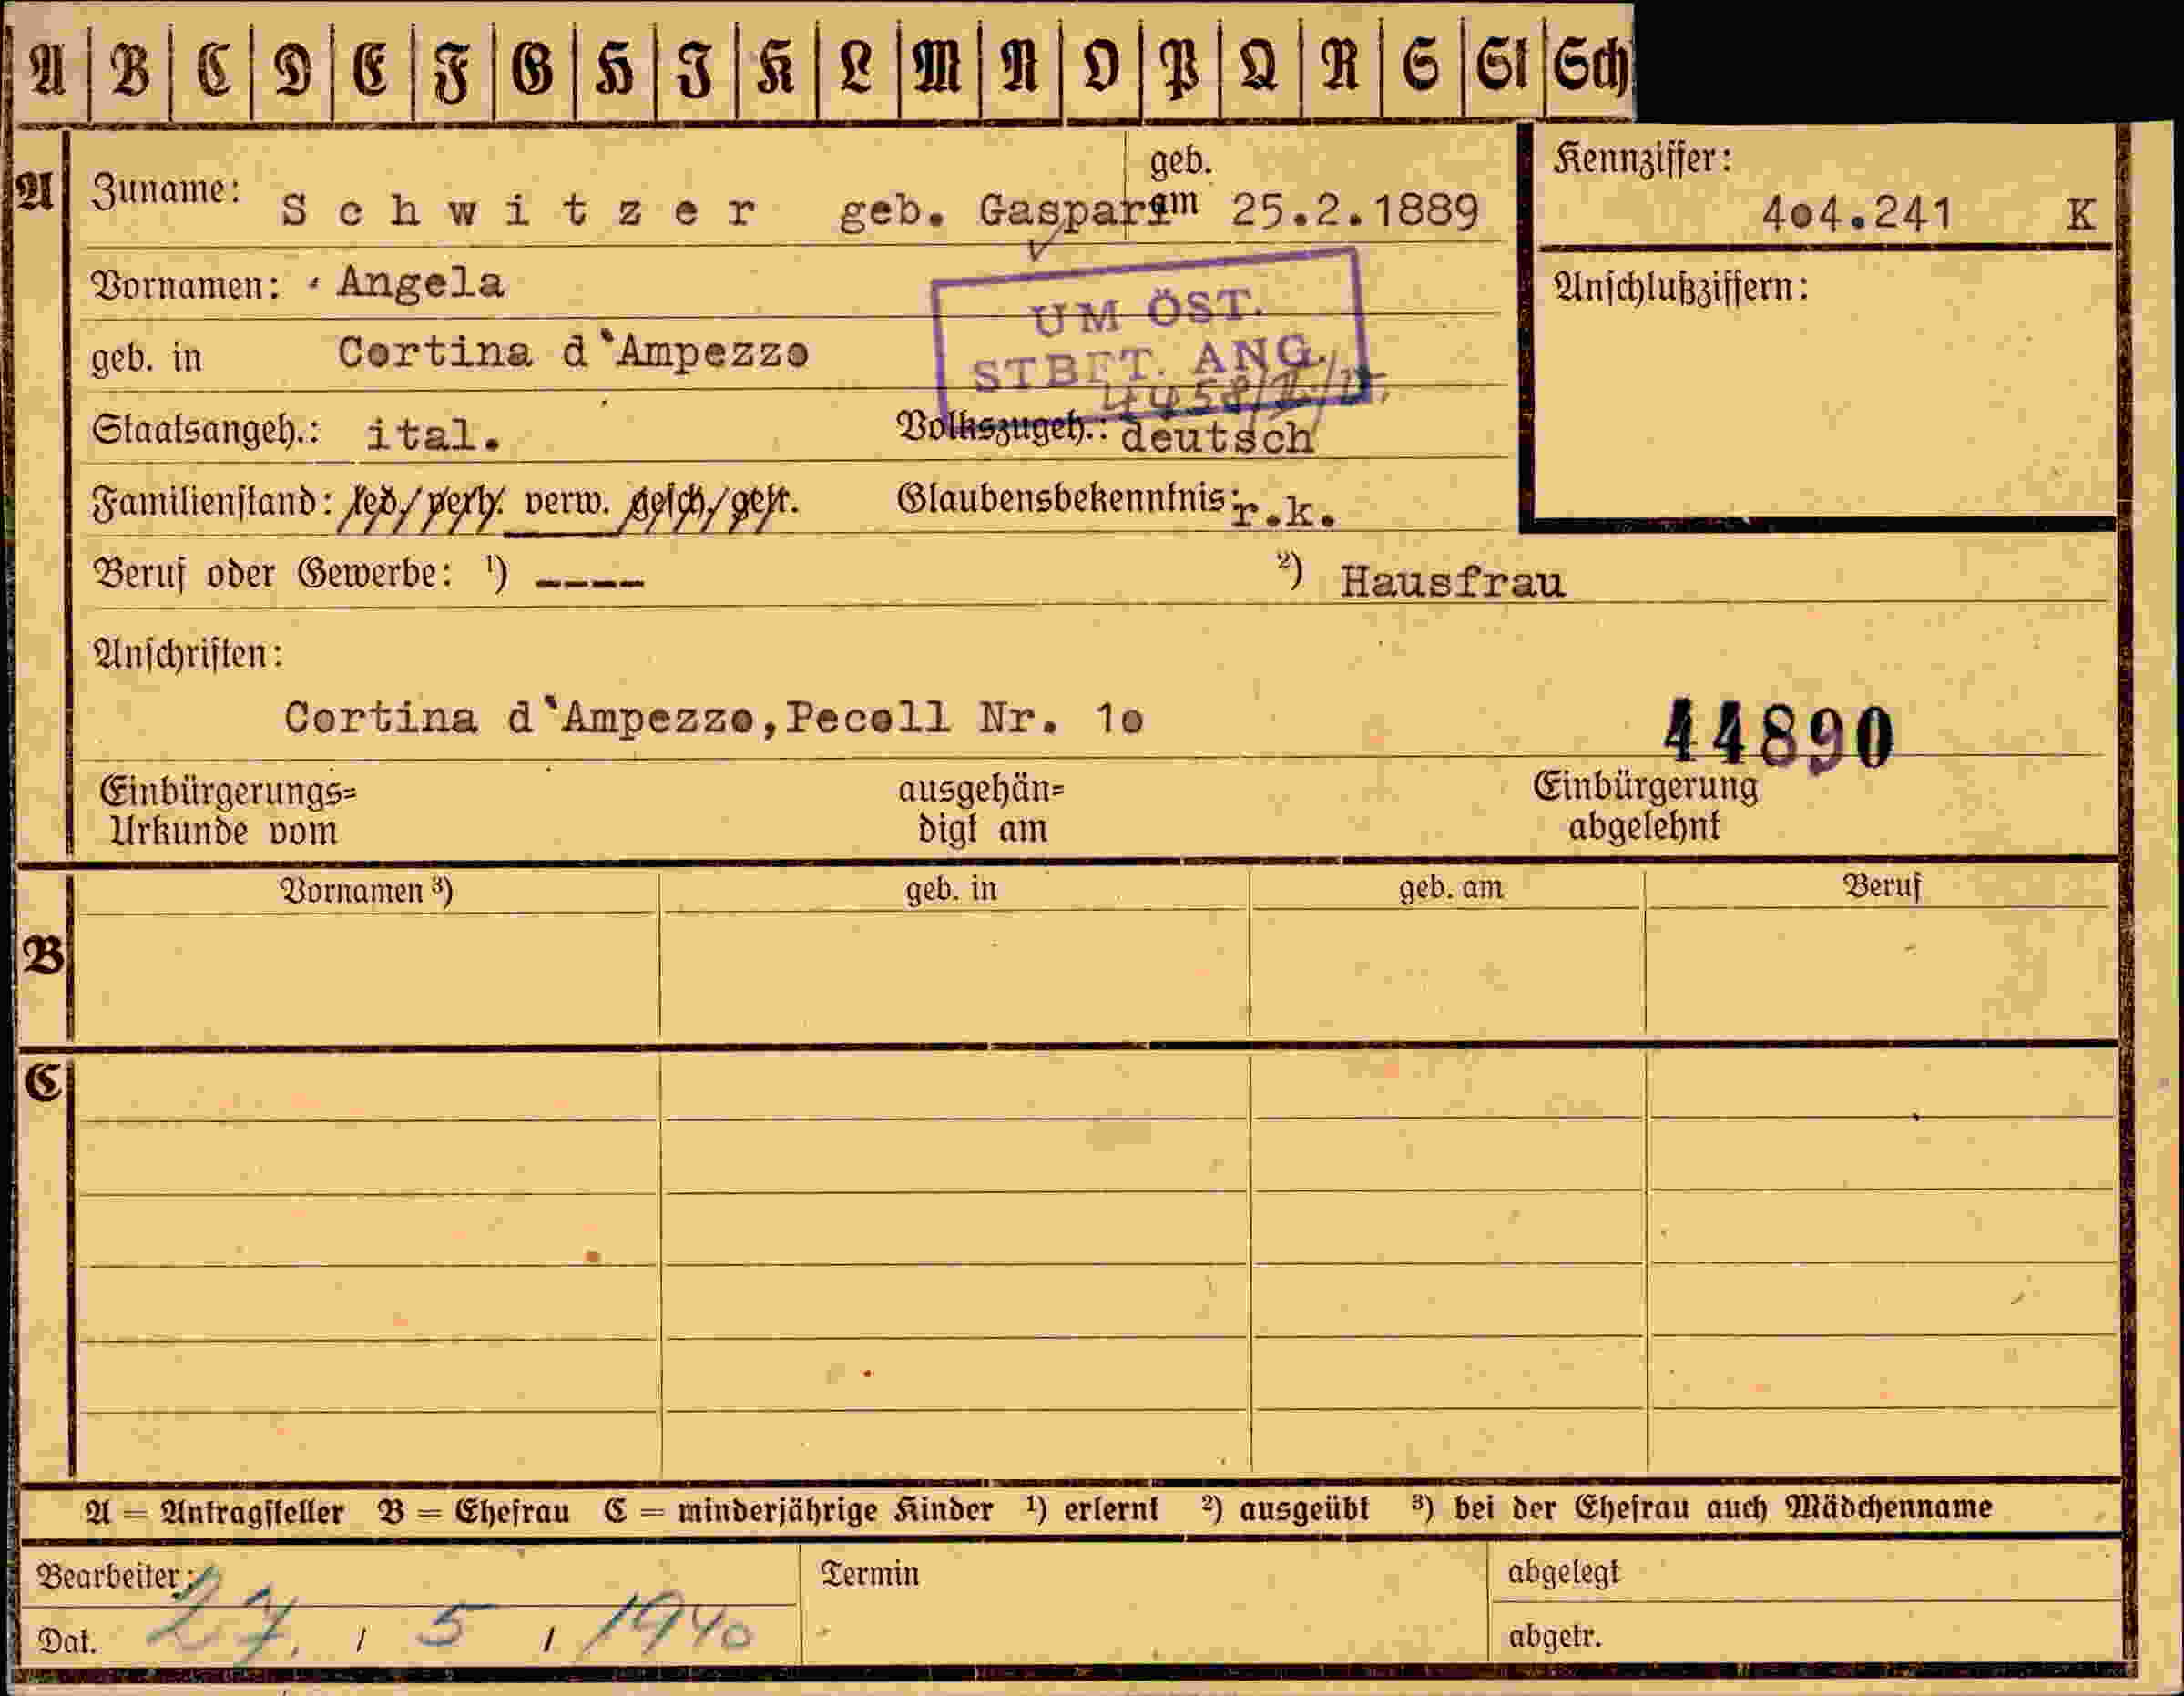 A B C D E F G H J K L M N O P Q R S St Sch
A Zuname: Schwitzer geb. Gaspari geb. am 25.2.1889
Kennziffer:
4o4.241 K
Vornamen: Angela
Anschlußziffern:
UM ÖST.
STBFT. ANG.
geb. in Cortina d`Ampezzo
Staatsangeh.: ital. Volkszugeh.: deutsch
Familienstand: led./verh. verw. gesch./getr. Glaubensbekenntnis: r.k.
Beruf oder Gewerbe: ¹) ---- ²) Hausfrau
Anschriften:
Cortina d`Ampezzo,Pecoll Nr. 1o
44890
Einbürgerungs= ausgehän= Einbürgerung
Urkunde vom digt am abgelehnt
Vornamen ³) geb. in geb. am Beruf
B
C
A = Antragsteller B = Ehefrau C = minderjährige Kinder ¹) erlernt ²) ausgeübt ³) bei der Ehefrau auch Mädchenname
Bearbeiter: Termin abgelegt
Dat. 27. / 5 / 1940 abgetr.